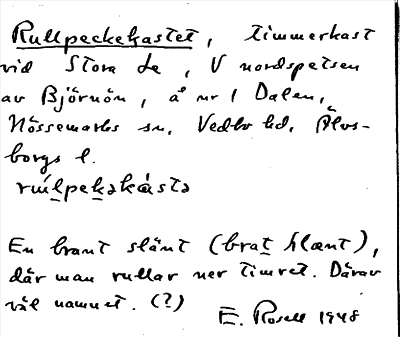 Rullpeckekastet, timmerkast
vid Stora Le, V nordspetsen
av Björnön, å nr 1 Dalen,
Nössemarks sn, Vedbo hd, Älvs-
borgs l.
rúlpekəkàstə
En brant slänt (brat hlænt),
där man rullar ner timret. Därav
väl namnet. (?)
E. Rosell 1948